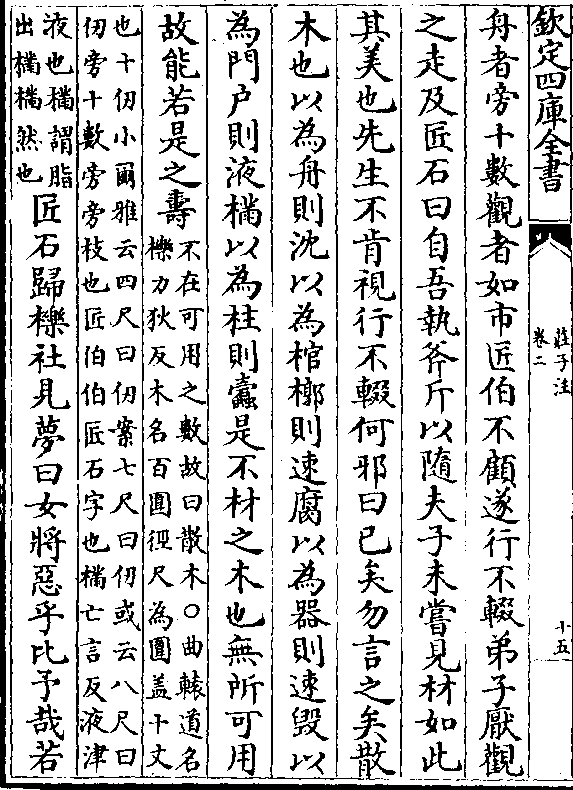 欽定四庫全書
莊子注
卷二
十五
舟者旁十數觀者如市匠伯不顧遂行不輟弟子厭觀
之走及匠石曰自吾執斧斤以隨夫子未嘗見材如此
其美也先生不肯視行不輟何邪曰已矣勿言之矣散
木也以為舟則沈以為棺槨則速腐以為器則速毀以
為門户則液樠以為柱則蠹是不材之木也無所可用
故能若是之壽
不在可用之數故曰散木○曲轅道名
櫟力狄反木名百圍徑尺為圍盖十丈
也十仞小爾雅云四尺曰仞案七尺曰仞或云八尺曰
仞旁十數旁旁枝也匠伯伯匠石字也樠亡言反液津
液也樠謂脂
出樠樠然也
匠石歸櫟社見夢曰女將惡乎比予哉若